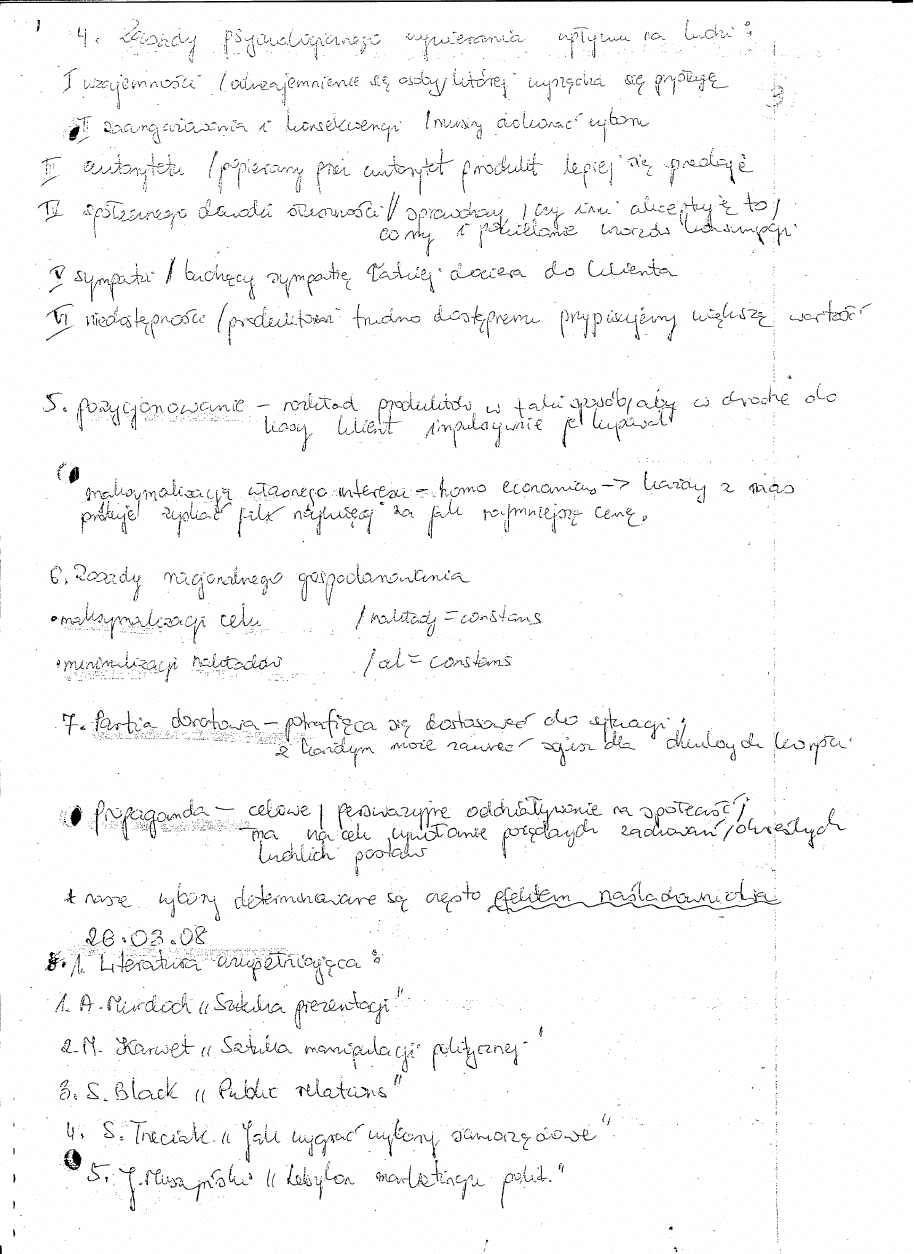 4. Zasady psychologicznego wywierania wpływu na ludzi :
3
I wzajemności /odwzajemnienie się osoby, której wyrządza się przysługę
II zaangażowania i konsekwencji /musi dokonać wyboru
III autorytetu /popierany przez autorytet produkt lepiej się sprzedaje
IV społecznego dowodu słuszności // sprawdzamy, czy inni akceptują to,
co my i powielanie wzorców konsumpcji
V sympatii / budzący sympatię łatwiej dociera do klienta
VI niedostępności /produktowi trudno dostępnemu przypisujemy większą wartość
5. pozycjonowanie – rozkład produktów w taki sposób, aby w drodze do
kasy klient impulsywnie je kupował
maksymalizacja własnego interesu – homo economicus –> każdy z nas
próbuje zyskać jak najwięcej za jak najmniejszą cenę.
6. Zasady racjonalnego gospodarowania
• maksymalizacji celu /nakłady = constans
• minimalizacji nakładów /cel = constans
7. Partia obrotowa – potrafiąca się dostosować do sytuacji ;
z każdym może zawrzeć sojusz dla
propaganda – celowe, perswazyjne oddziaływanie na społeczność,
ma na celu wywołanie pożądanych zachowań, określonych
ludzkich postaw
* nasze wybory determinowane są często efektem naśladownictwa
28.03.08
1. Literatura uzupełniająca :
1. A. Murdoch „Sztuka prezentacji"
2. M. Karwat „Sztuka manipulacji politycznej"
3. S. Black „Public relations"
4. S. Trzeciak „Jak wygrać wybory samorządowe"
5. J. Muszyński „Leksykon marketingu polit."